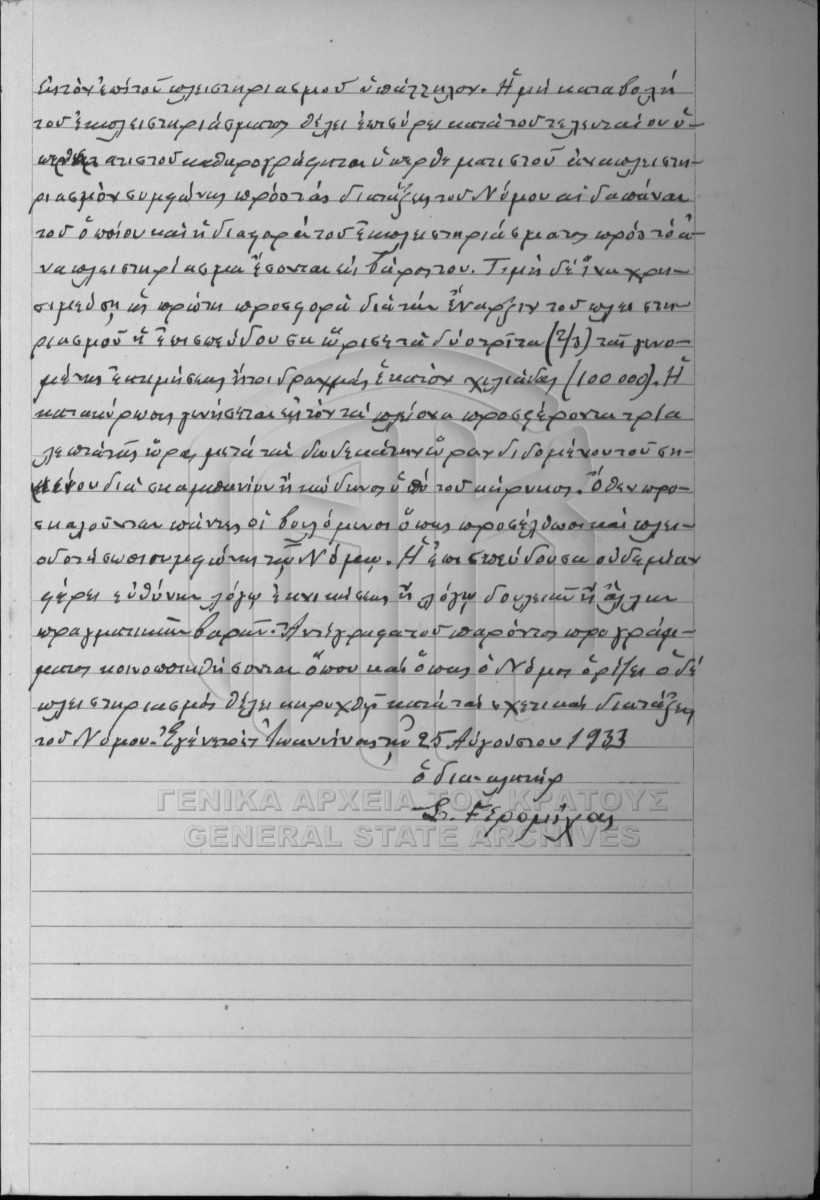 εἰς τὸν ἐπὶ τοῦ πλειστηριασμοῦ ὑπάλληλον. Ἡ μὴ καταβολὴ
τοῦ ἐκπλειστηριάσματος θέλει ἐπισύρει κατὰ τοῦ τελευταίου ὑ-
περθεματιστοῦ καθαρογράφεται ὑπερθεματιστοῦ ἀναπλειστη-
ριασμὸν συμφώνως πρὸς τὰς διατάξεις τοῦ Νόμου αἱ δαπάναι
τοῦ ὁποίου καὶ ἡ διαφορὰ τοῦ ἐκπλειστηριάσματος πρὸς τὸ ἀ-
ναπλειστηρίασμα ἔσονται εἰς βάρος του. Τιμὴ δὲ ἵνα χρη-
σιμεύσῃ ὡς πρώτη προσφορὰ διὰ τὴν ἔναρξιν τοῦ πλειστη-
ριασμοῦ ἡ ἐπισπεύδουσα ὥρισε τὰ δύο τρίτα (2/3) τῆς γενο-
μένης ἐκτιμήσεως ἤτοι δραχμὰς ἑκατὸν χιλιάδας (100000). Ἡ
κατακύρωσις γενήσεται εἰς τὸν τὰ πλείονα προσφέροντα τρία
λεπτὰ τῆς ὥρας μετὰ τὴν δωδεκάτην ὥραν διδομένου τοῦ ση-
μείου διὰ σκαμπανίου ἢ κώδωνος ὑπὸ τοῦ κήρυκος. Ὅθεν προ-
σκαλοῦνται πάντες οἱ βουλόμενοι ὅπως προσέλθωσι καὶ πλει-
οδοτήσωσι συμφώνως τῷ Νόμῳ. Ἡ ἐπισπεύδουσα οὐδεμίαν
φέρει εὐθύνην λόγῳ ἐκνικήσεως ἢ λόγῳ δουλειῶν ἢ ἄλλων
πραγματικῶν βαρῶν. Ἀντίγραφα τοῦ παρόντος προγράμ-
ματος κοινοποιηθήσονται ὅπου καὶ ὅπως ὁ Νόμος ὁρίζει ὁ δὲ
πλειστηριασμὸς θέλει κηρυχθῇ κατὰ τὰς σχετικὰς διατάξεις
τοῦ Νόμου. Ἐγένετο ἐν Ἰωαννίνοις τῇ 25 Αὐγούστου 1933
ὁ δικ. κλητὴρ
Σπ. Γερομίχας
ΓΕΝΙΚΑ ΑΡΧΕΙΑ ΤΟΥ ΚΡΑΤΟΥΣ
GENERAL STATE ARCHIVES